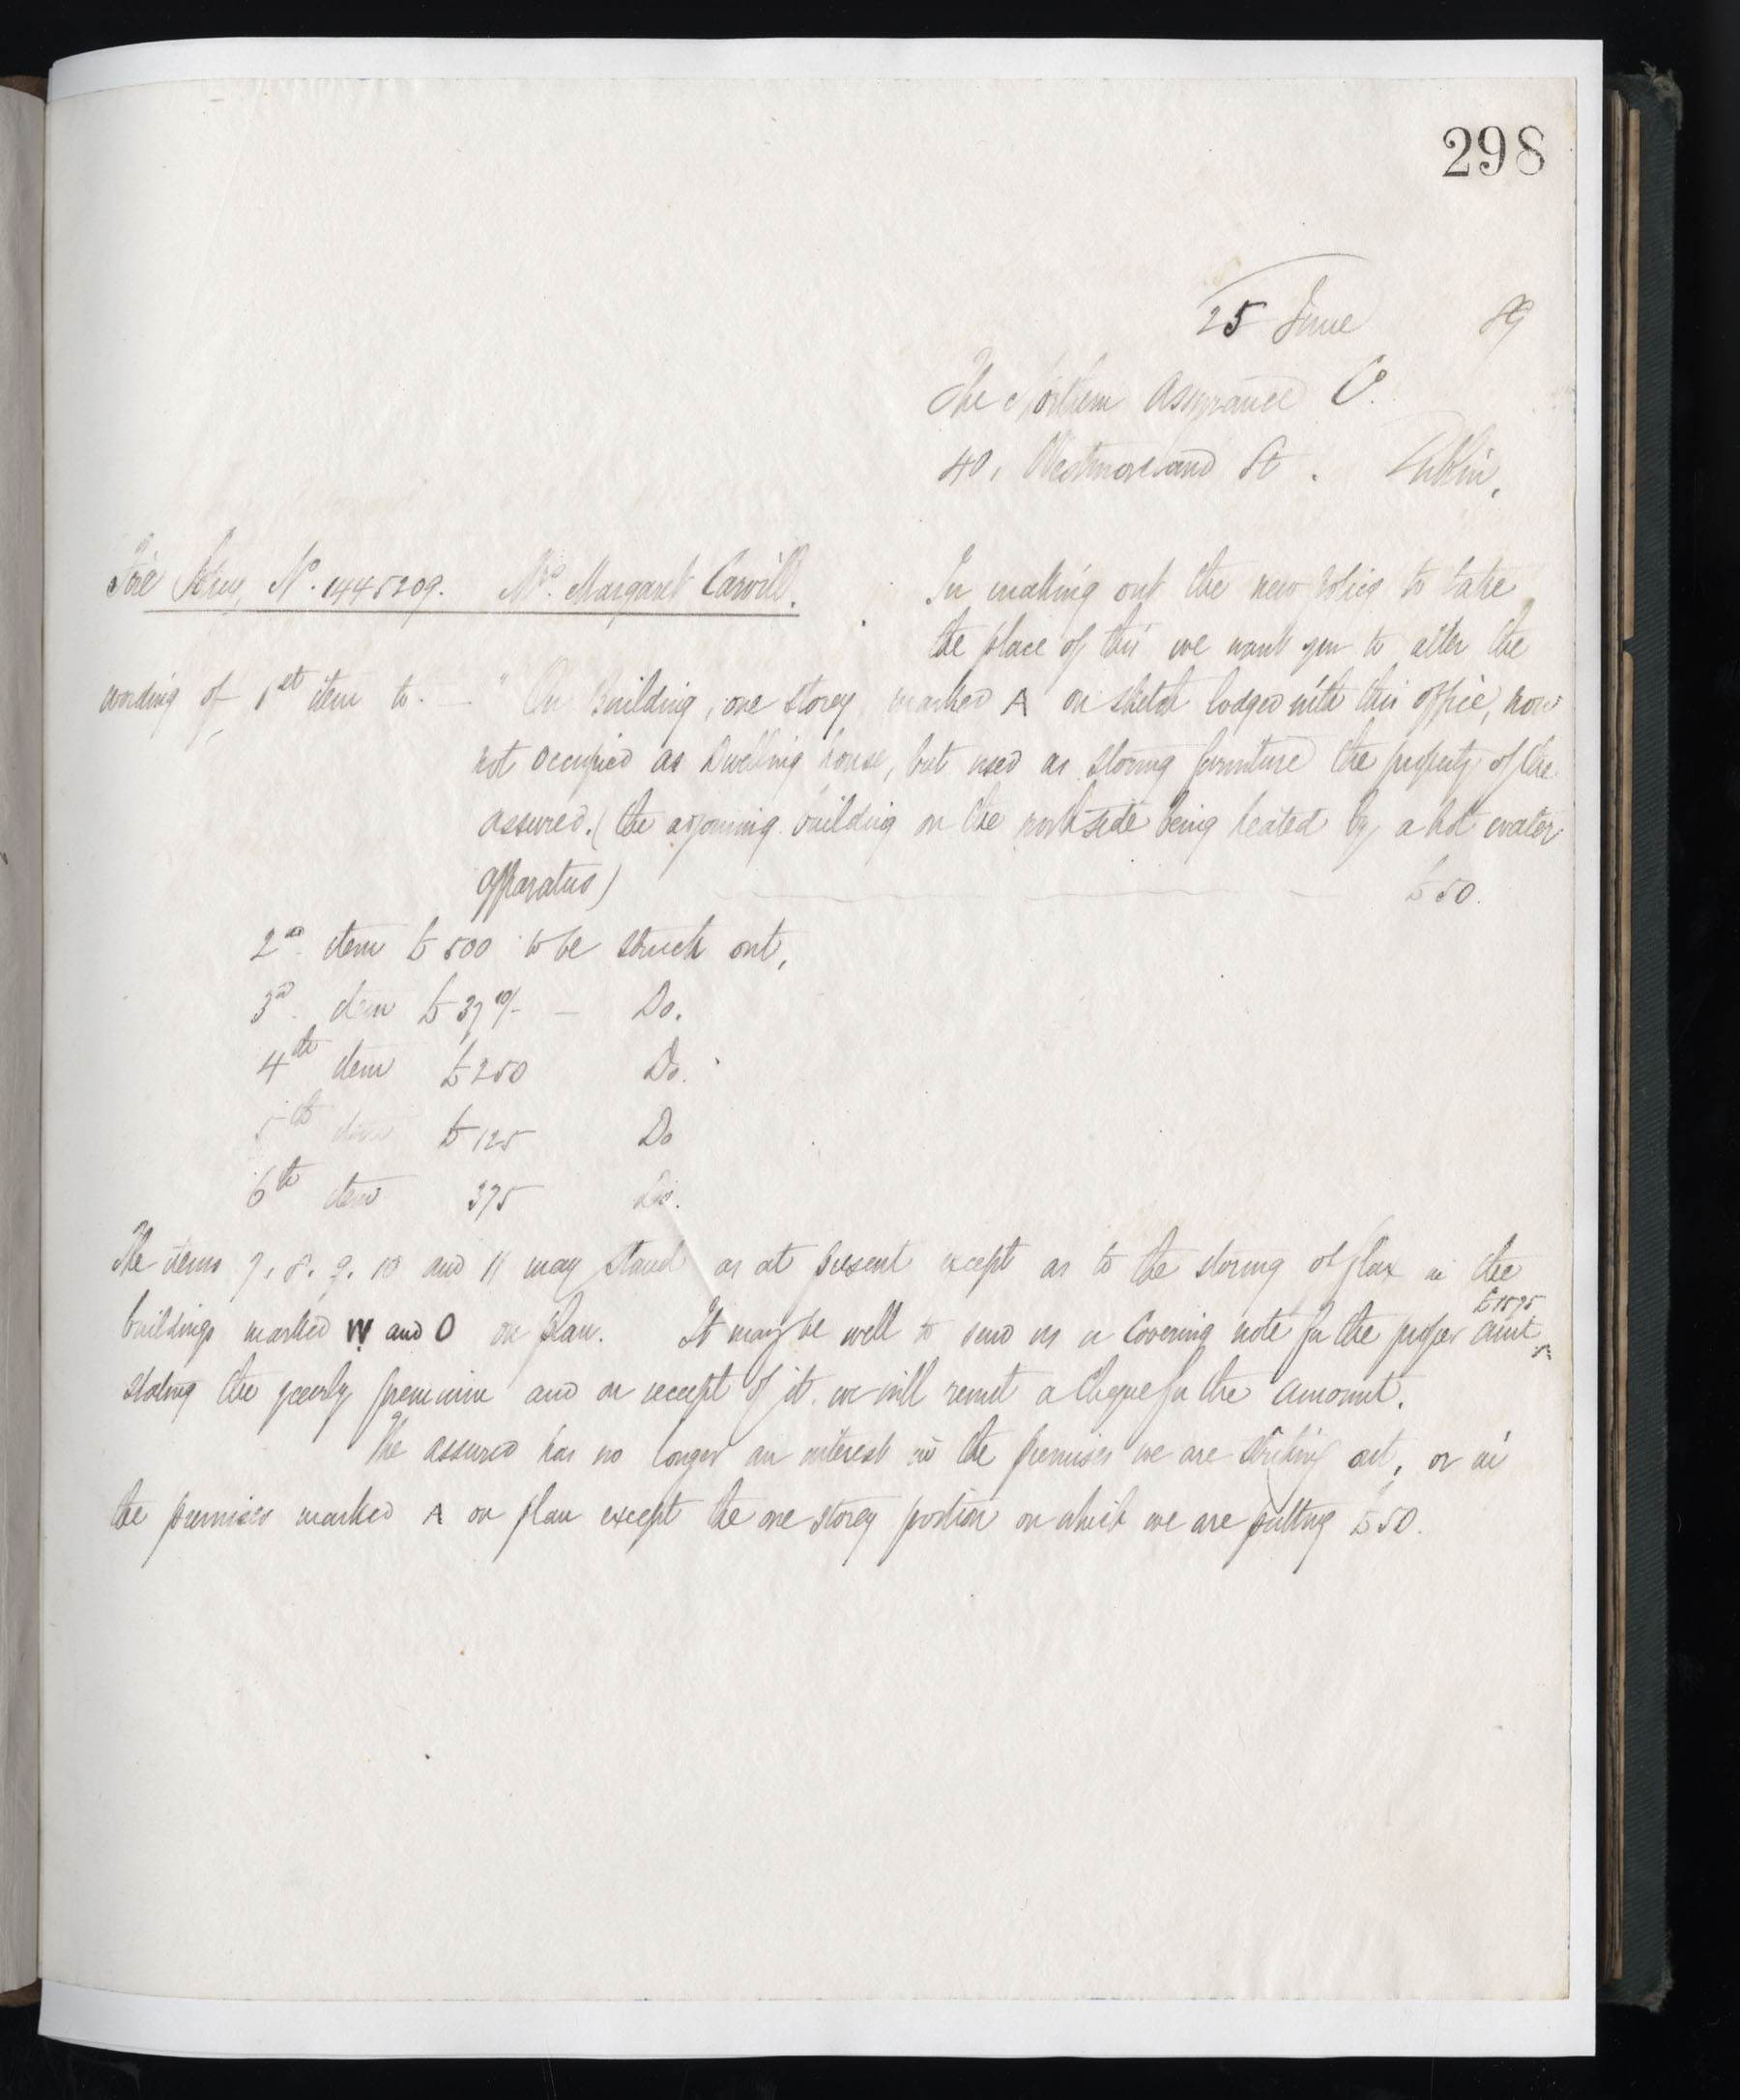 298
25 June 89
The Northern Assurance Co.
40, Westmoreland St. Dublin,
Fire Policy No. 1445209. Mrs. Margaret Carvill. In making out the new Policy to take
the place of this we want you to alter the
wording of 1st item to. — "On Building, one storey marked A on sketch lodged with this office, now
not occupied as Dwelling house, but used as storing furniture the property of the
assured. (the adjoining building on the north side being heated by a hot water
apparatus) — £50.
2nd item £500 to be struck out,
3rd item £37 10/- — Do.
4th item £250 Do.
5th item £125 Do
6th item 375 Do.
The items 7, 8. 9. 10 and 11 may stand as at present except as to the storing of flax in the
buildings marked W and O on plan. It may be well to send us a Covering note for the proper amt £1575
stating the yearly premium and on receipt of it we will remit a cheque for the amount.
The assured has no longer an interest in the premises we are striking out, or in
the premises marked A on plan except the one storey portion on which we are putting £50.